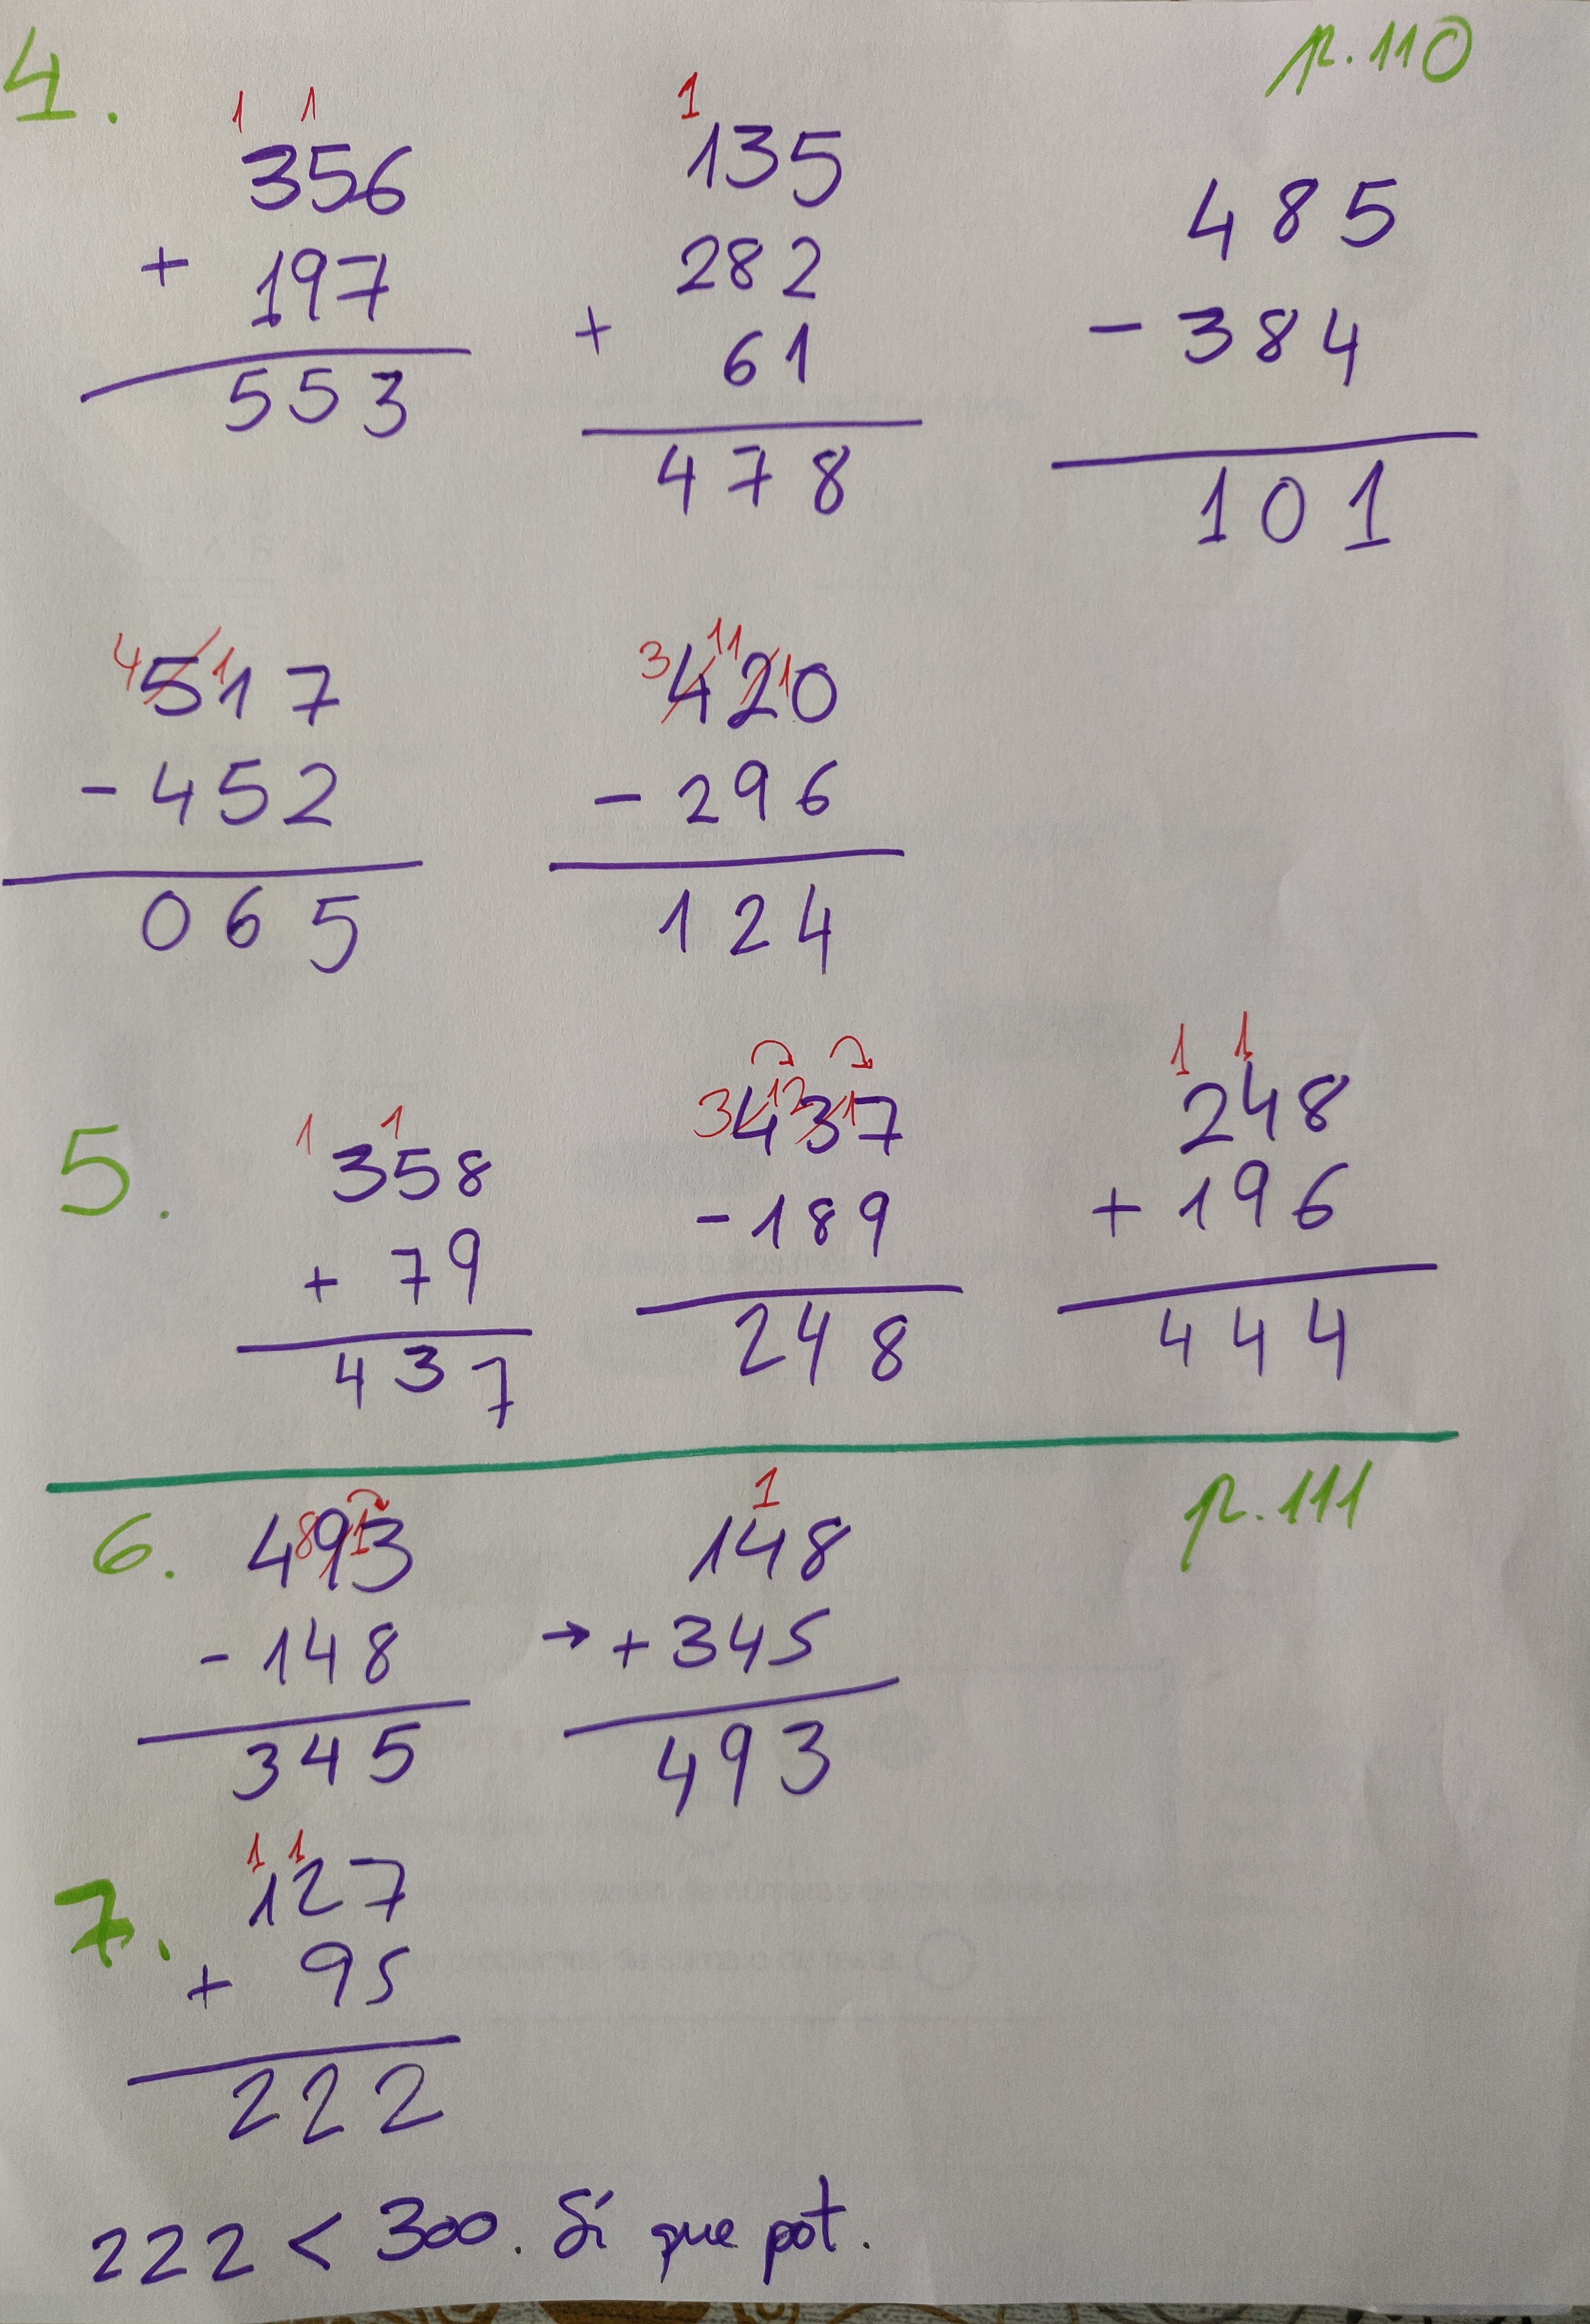 4. p.110
1 1
356
+ 197
553
1
135
282
+ 61
478
485
- 384
101
4 1
517
- 452
065
3 11 1
420
- 296
124
5.
1 1
358
+ 79
437
3 12 1
437
- 189
248
1 1
248
+ 196
444
p.111
6.
8 1
493
- 148
345
1
148
→ + 345
493
7.
1 1
127
+ 95
222
222 < 300. Sí que pot.